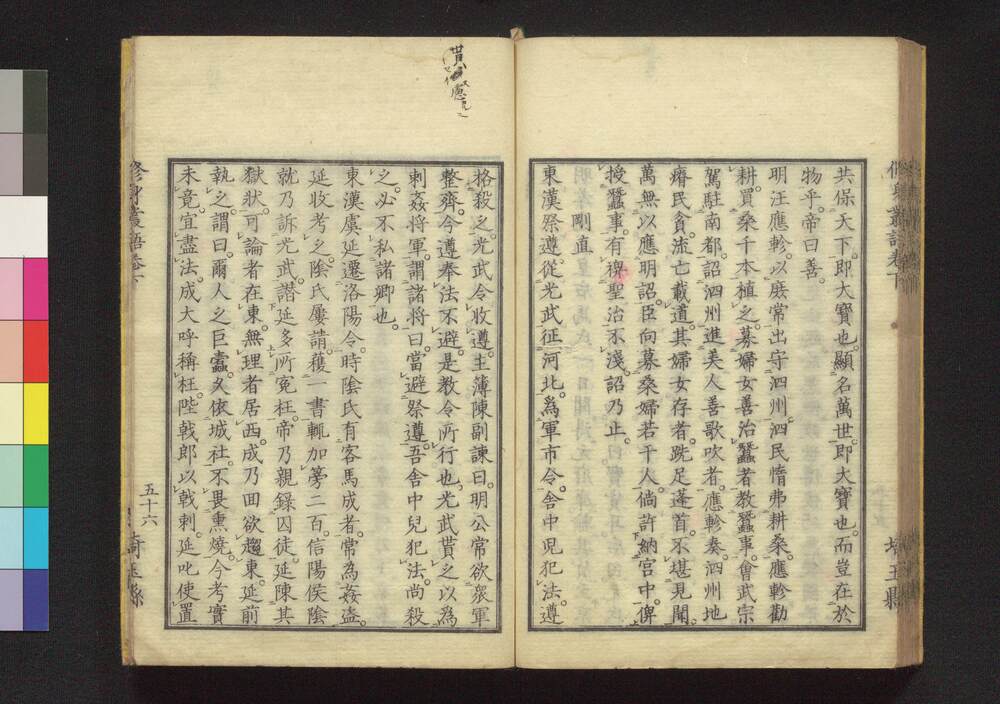 共保天下。即大寶也。顯名萬世。即大寶也。而豈在於
物乎。帝曰善。
明汪應軫。以庶常出守泗州。泗民惰弗耕桑。應軫勸
耕。買桑千本植之。募婦女善治蠶者教蠶事。會武宗
駕駐南都。詔泗州進美人善歌吹者。應軫奏。泗州地
瘠民貧。流亡載道。其婦女存者。跣足蓬首。不堪見聞。
萬無以應明詔。臣向募桑婦若干人。倘許納宮中。俾
授蠶事。有裨聖治不淺。詔乃止。
剛直
東漢祭遵。從光武征河北。為軍市令。舍中児犯法。遵
格殺之。光武令收遵。主簿陳副諫曰。明公常欲衆軍
整齊。今遵奉法不避。是教令所行也。光武貰之。以為
刺姦將軍。謂諸將曰。當避祭遵。吾舍中兒犯法。尚殺
之。必不私諸卿也。
東漢虞延。遷洛陽令。時陰氏有客馬成者。常為姦盜。
延收考之。陰氏屢請。獲一書輒加篣二百。信陽侯陰
就乃訴光武。譖延多所冤枉。帝乃親録囚徒。延陳其
獄狀。可論者在東。無理者居西。成乃回欲趨東。延前
執之。謂曰。爾人之巨蠹。久依城社。不畏熏燒。今考實
未竟。宜盡法。成大呼稱枉。陛戟郎以戟刺。延叱使置
修身叢語卷下
五十六
埼玉縣